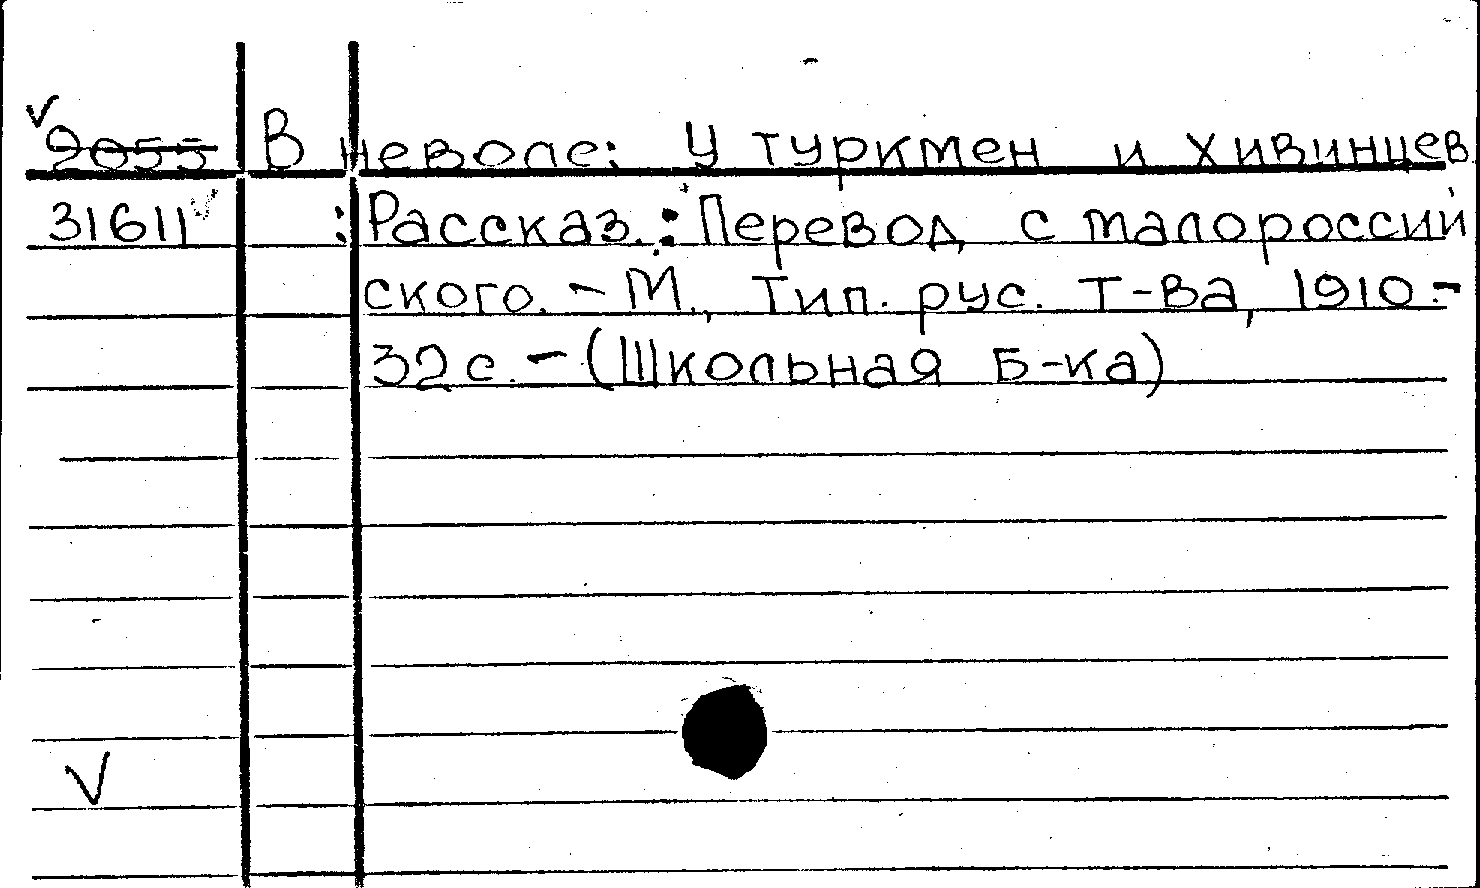 9055 В неволе: У туркмен и хивинцев
31611 : Рассказ.: Перевод с малороссий
ского. - М., Тип. рус. т-ва, 1910.-
32 с. - (Школьная б-ка)